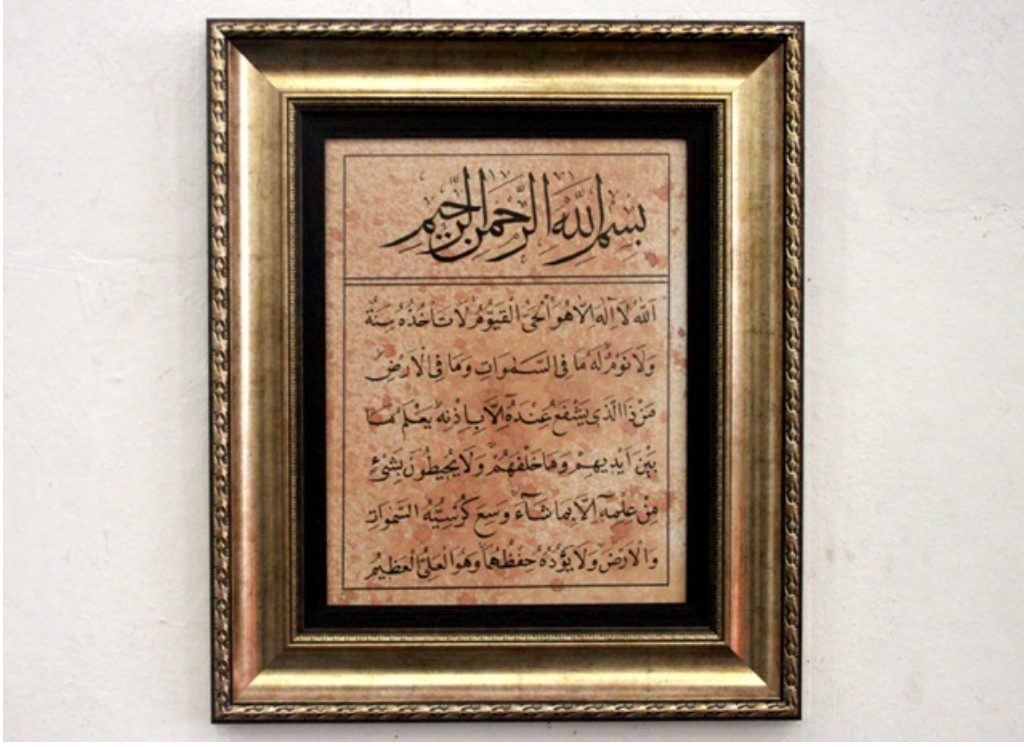 بِسْمِ اللهِ الرَّحْمٰنِ الرَّحِيمِ
اَللهُ لَا اِلٰهَ اِلَّا هُوَ اَلْحَيُّ الْقَيُّومُ لَا تَأْخُذُهُ سِنَةٌ
وَلَا نَوْمٌ لَهُ مَا فِي السَّمٰوَاتِ وَمَا فِي الْاَرْضِ
مَنْ ذَا الَّذِي يَشْفَعُ عِنْدَهُ اِلَّا بِاِذْنِهِ يَعْلَمُ مَا
بَيْنَ اَيْدِيهِمْ وَمَا خَلْفَهُمْ وَلَا يُحِيطُونَ بِشَيْءٍ
مِنْ عِلْمِهِ اِلَّا بِمَا شَاءَ وَسِعَ كُرْسِيُّهُ السَّمٰوَاتِ
وَالْاَرْضَ وَلَا يَؤُدُهُ حِفْظُهُمَا وَهُوَ الْعَلِيُّ الْعَظِيمُ